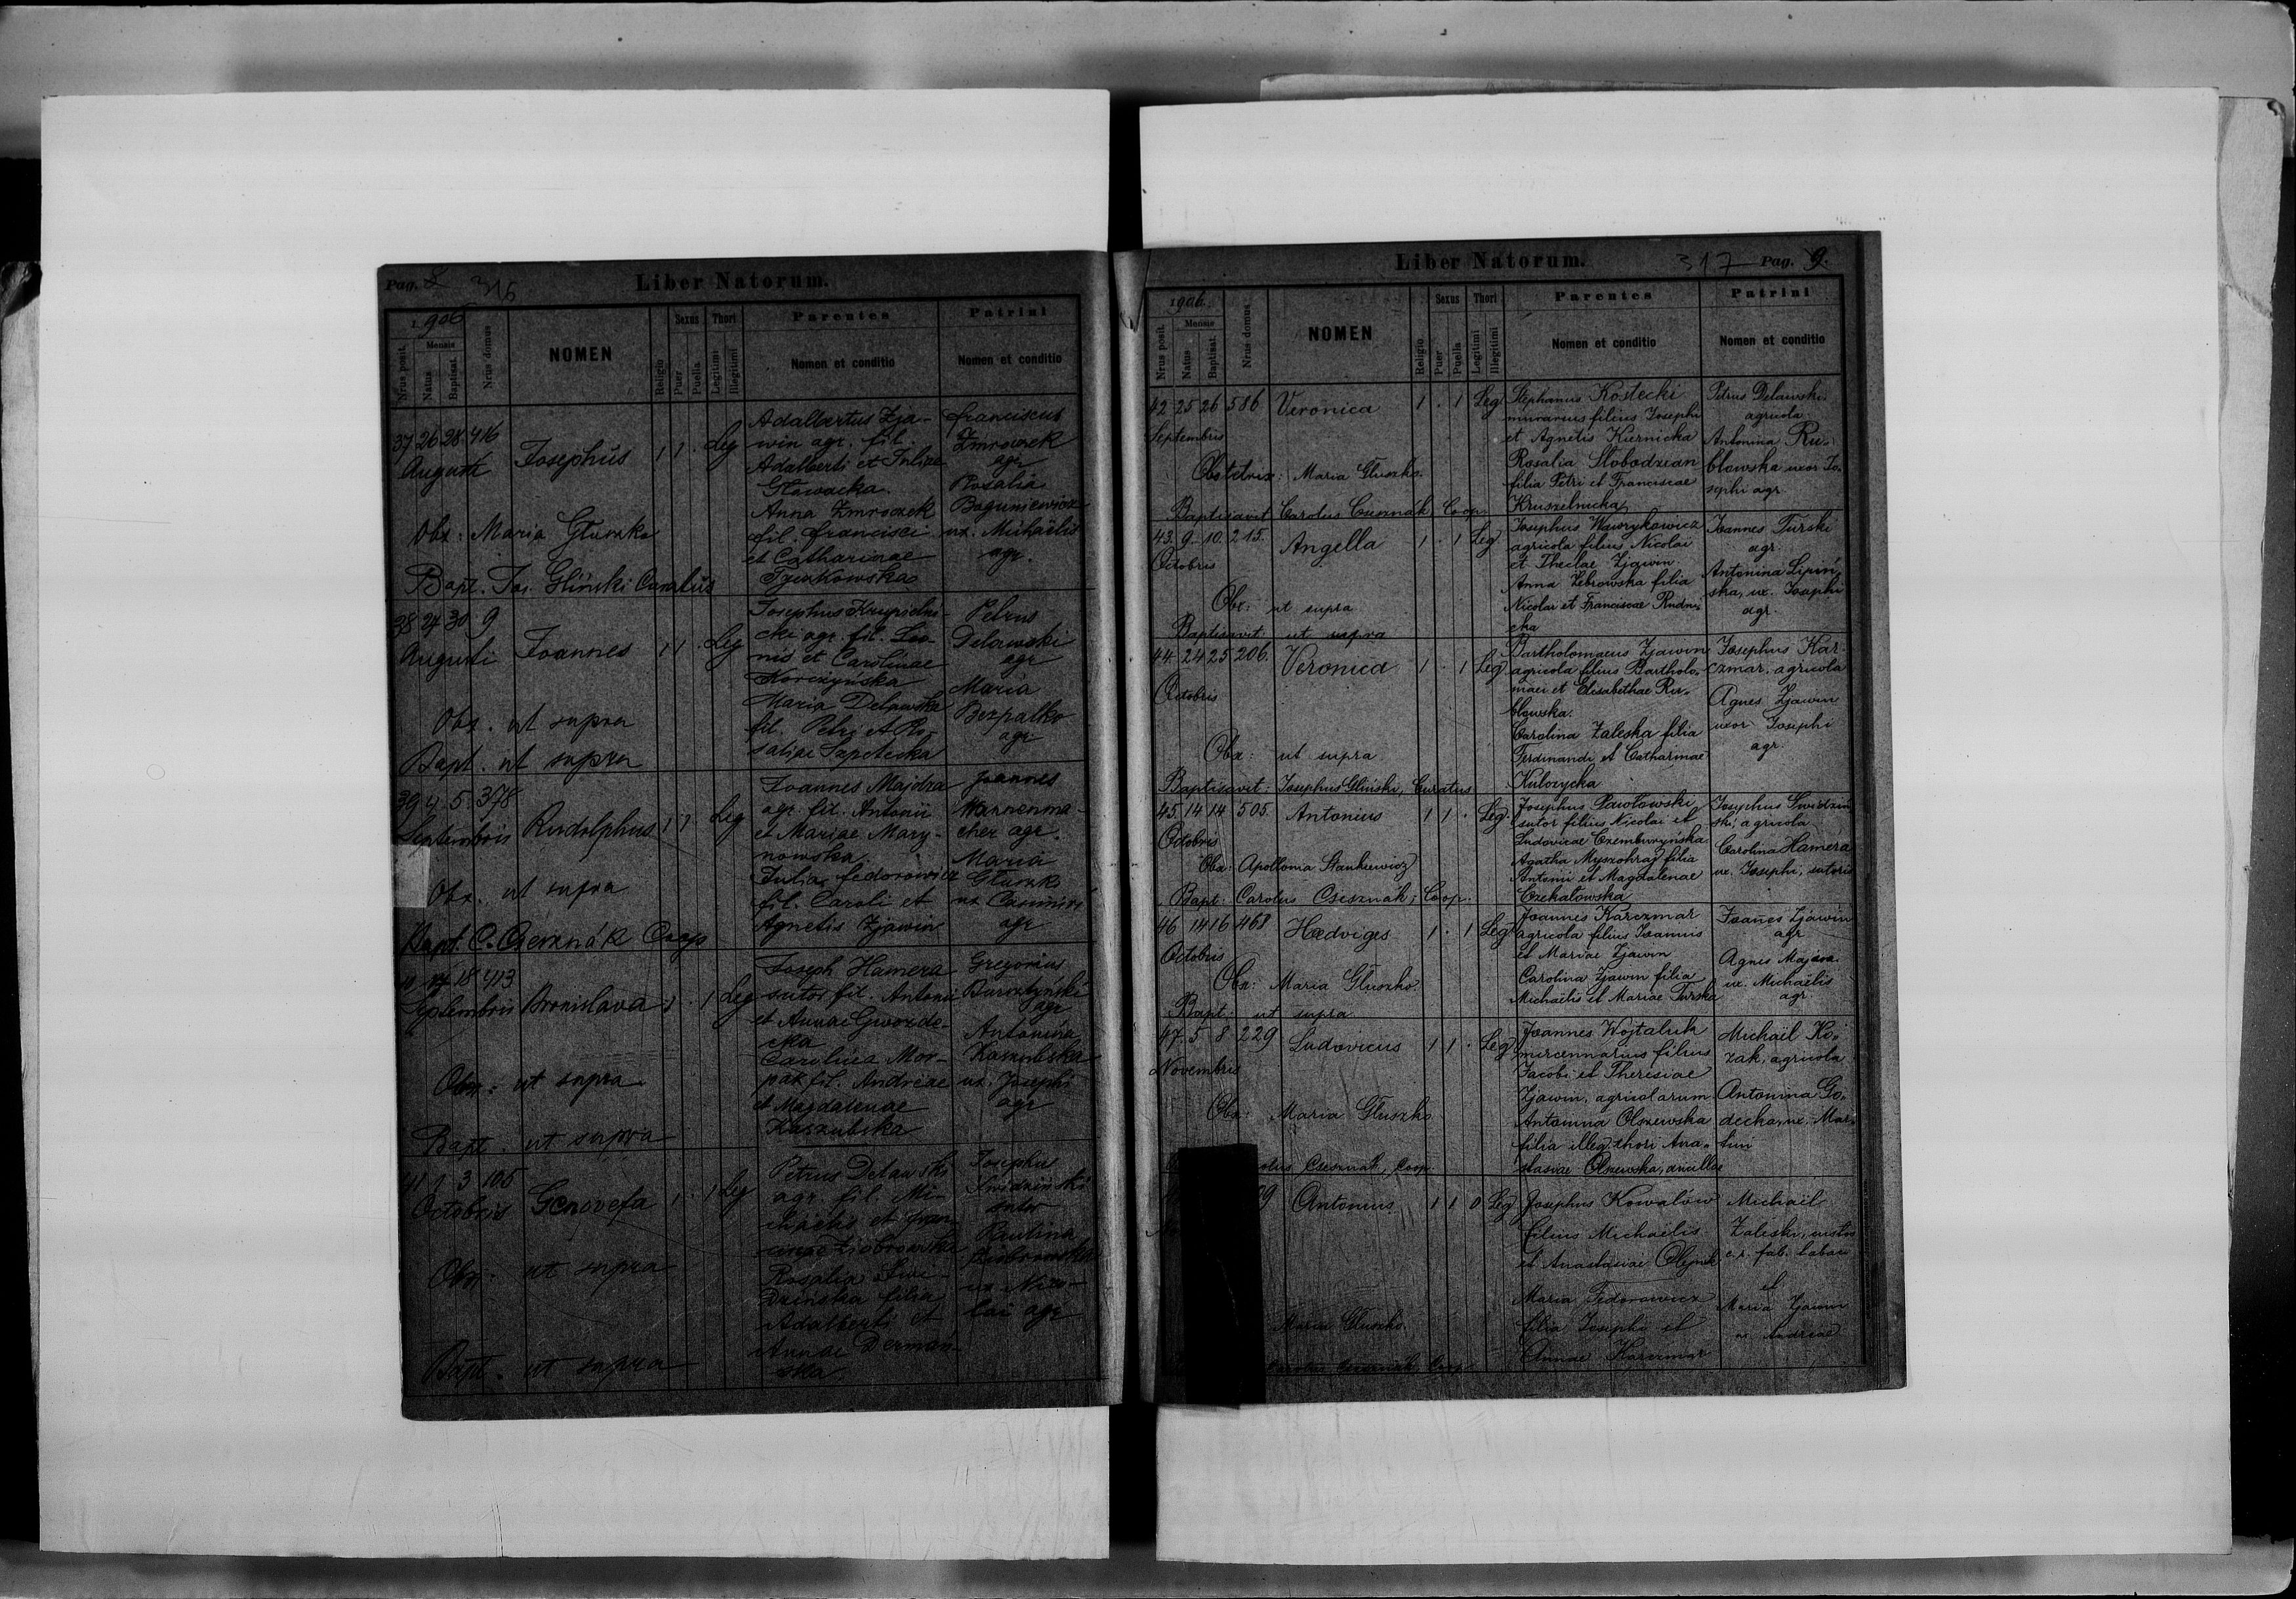 Pag. 8
Liber Natorum.
1906
Nrus posit.
Mensis
Natus
Baptisat.
Nrus domus
NOMEN
Religio
Sexus
Puer
Puella
Thori
Legitimi
Illegitimi
Parentes
Nomen et conditio
Patrini
Nomen et conditio
37 26 28 416 Josephus 1 1 . Leg
Augusti
Adalbertus Zja-
win agr. fil.
Adalberti et Juliae
Głowacka.
Anna Zmroczek
fil. Francisci
et Catharinae
Franciscus
Zmroczek
agr
Rosalia
Boguniewicz
ux. Michaëlis
agr.
Obx: Maria Głuszko
Bapt. Jos. Gliński Curatus
38 27 30 9 Joannes 1 1 . Leg
Augusti
agr. fil. Leo-
nis et Carolinae
Korczyńska
Maria Delawska
fil. Petri et Ro-
saliae
Petrus
Delawski
agr
Maria
Bezpalko
agr
Obx. ut supra
Bapt. ut supra
39 4 5 378 Rudolphus 1 1 . Leg
Septembris
Joannes Majdra
agr. fil. Antonii
et Mariae Mary-
nowska.
Julia Fedorowicz
fil. Caroli et
Agnetis Zjawin
Joannes
cher agr.
Maria
Głuszko
ux Casimiri
agr
Obx. ut supra
Bapt. C. Csesznák Coop
17 18 413 Bronislava 1 . 1 Leg
Septembris
Joseph Hamera
sutor fil. Antonii
et Annae Gwozde-
cka
Carolina Mor-
pak fil. Andreae
et Magdalenae
Kaszubska
Gregorius
Bursztyński
agr
Antonina
Kaszubska
ux. Josephi
agr
Obx: ut supra
Bapt. ut supra
41 1 3 105 Genovefa 1 . 1 Leg
Octobris
Petrus Delawski
agr. fil. Mi-
chaëlis et Fran-
ciscae Ziobrowska
Rosalia Swi-
dzińska filia
Adalberti et
Annae Dermań-
ska
Josephus
Swidziński
sutor
Paulina
Ziobrowska
ux Nico-
lai agr
Obx: ut supra
Bapt. ut supra
Liber Natorum.
317 Pag. 9.
1906
Nrus posit.
Mensis
Natus
Baptisat.
Nrus domus
NOMEN
Religio
Sexus
Puer
Puella
Thori
Legitimi
Illegitimi
Parentes
Nomen et conditio
Patrini
Nomen et conditio
42 25 26 586 Veronica 1 . 1 Leg
Septembris
Stephanus Kostecki
murarius filius Josephi
et Agnetis Kiernicka
Rosalia Slobodzian
filia Petri et Franciscae
Kruszelnicka
Petrus Delawski
agricola
Antonina Ru-
błowska uxor Jo-
sephi agr.
Obstetrix: Maria Głuszko.
Baptisavit Carolus Csesznák, Coop
43. 9. 10. 215. Angella 1 . 1 Leg
Octobris
Josephus Wawrykowicz
agricola filius Nicolai
et Theclae Zjawin.
Anna Zebrowska filia
Nicolai et Franciscae Rudni-
cka
Joannes Turski
agr.
Antonina Lipiń-
ska, ux. Josephi
agr.
Obx: ut supra
Baptisavit: ut supra
44 24 25 206. Veronica 1 . 1 Leg
Octobris
Bartholomaeus Zjawin
agricola filius Bartholo-
maei et Elisabethae Ru-
błowska.
Carolina Zaleska filia
Ferdinandi et Catharinae
Kulczycka
Josephus Kar-
czmar, agricola
Agnes Zjawin
uxor Josephi
agr.
Obx: ut supra
Baptisavit: Josephus Gliński, Curatus
45. 14 14 505. Antonius 1 1 . Leg.
Octobris
Josephus Pawłowski
sutor filius Nicolai et
Ludovicae Czemburyńska
Agatha Myszohrad filia
Antonii et Magdalenae
Czekałowska
Josephus Swidziń-
ski, agricola
Carolina Hamera
ux. Josephi, sutoris
Obx: Apollonia Stankiewicz
Bapt: Carolus Csesznák, Coop.
46 14 16 468 Hedviges 1 . 1 Leg
Octobris
Joannes Karczmar
agricola filius Joannis
et Mariae Zjawin
Carolina Zjawin filia
Michaëlis et Mariae Turska
Joanes Zjawin
agr
Agnes Majdra
ux. Michaëlis
agr.
Obx: Maria Głuszko.
Bapt: ut supra
47. 5 8 229 Ludovicus 1 1 . Leg
Novembris
Joannes Wojtaluk
mercennarius filius
Jacobi et Theresiae
Zjawin, agricolarum
Antonina Olszewska
filia illeg. thori Ana-
stasiae Olszewska, ancillae
Michaël Ko-
zak, agricola
Antonina Go-
decka, ux. Mar-
tini
Obx: Maria Głuszko
Csesznák, Coop.
Antonius 1 1 0 Leg
Josephus Kowalów
filius Michaëlis
et Anastasiae Olejnik
Maria Fedorowicz
filia Josephi et
Annae Karczmar
Michaël
Zaleski, custos
c.r. fab. tabac
et
Maria Zjawin
ux Andreae
Maria Głuszko.
Carolus Csesznák Coop.